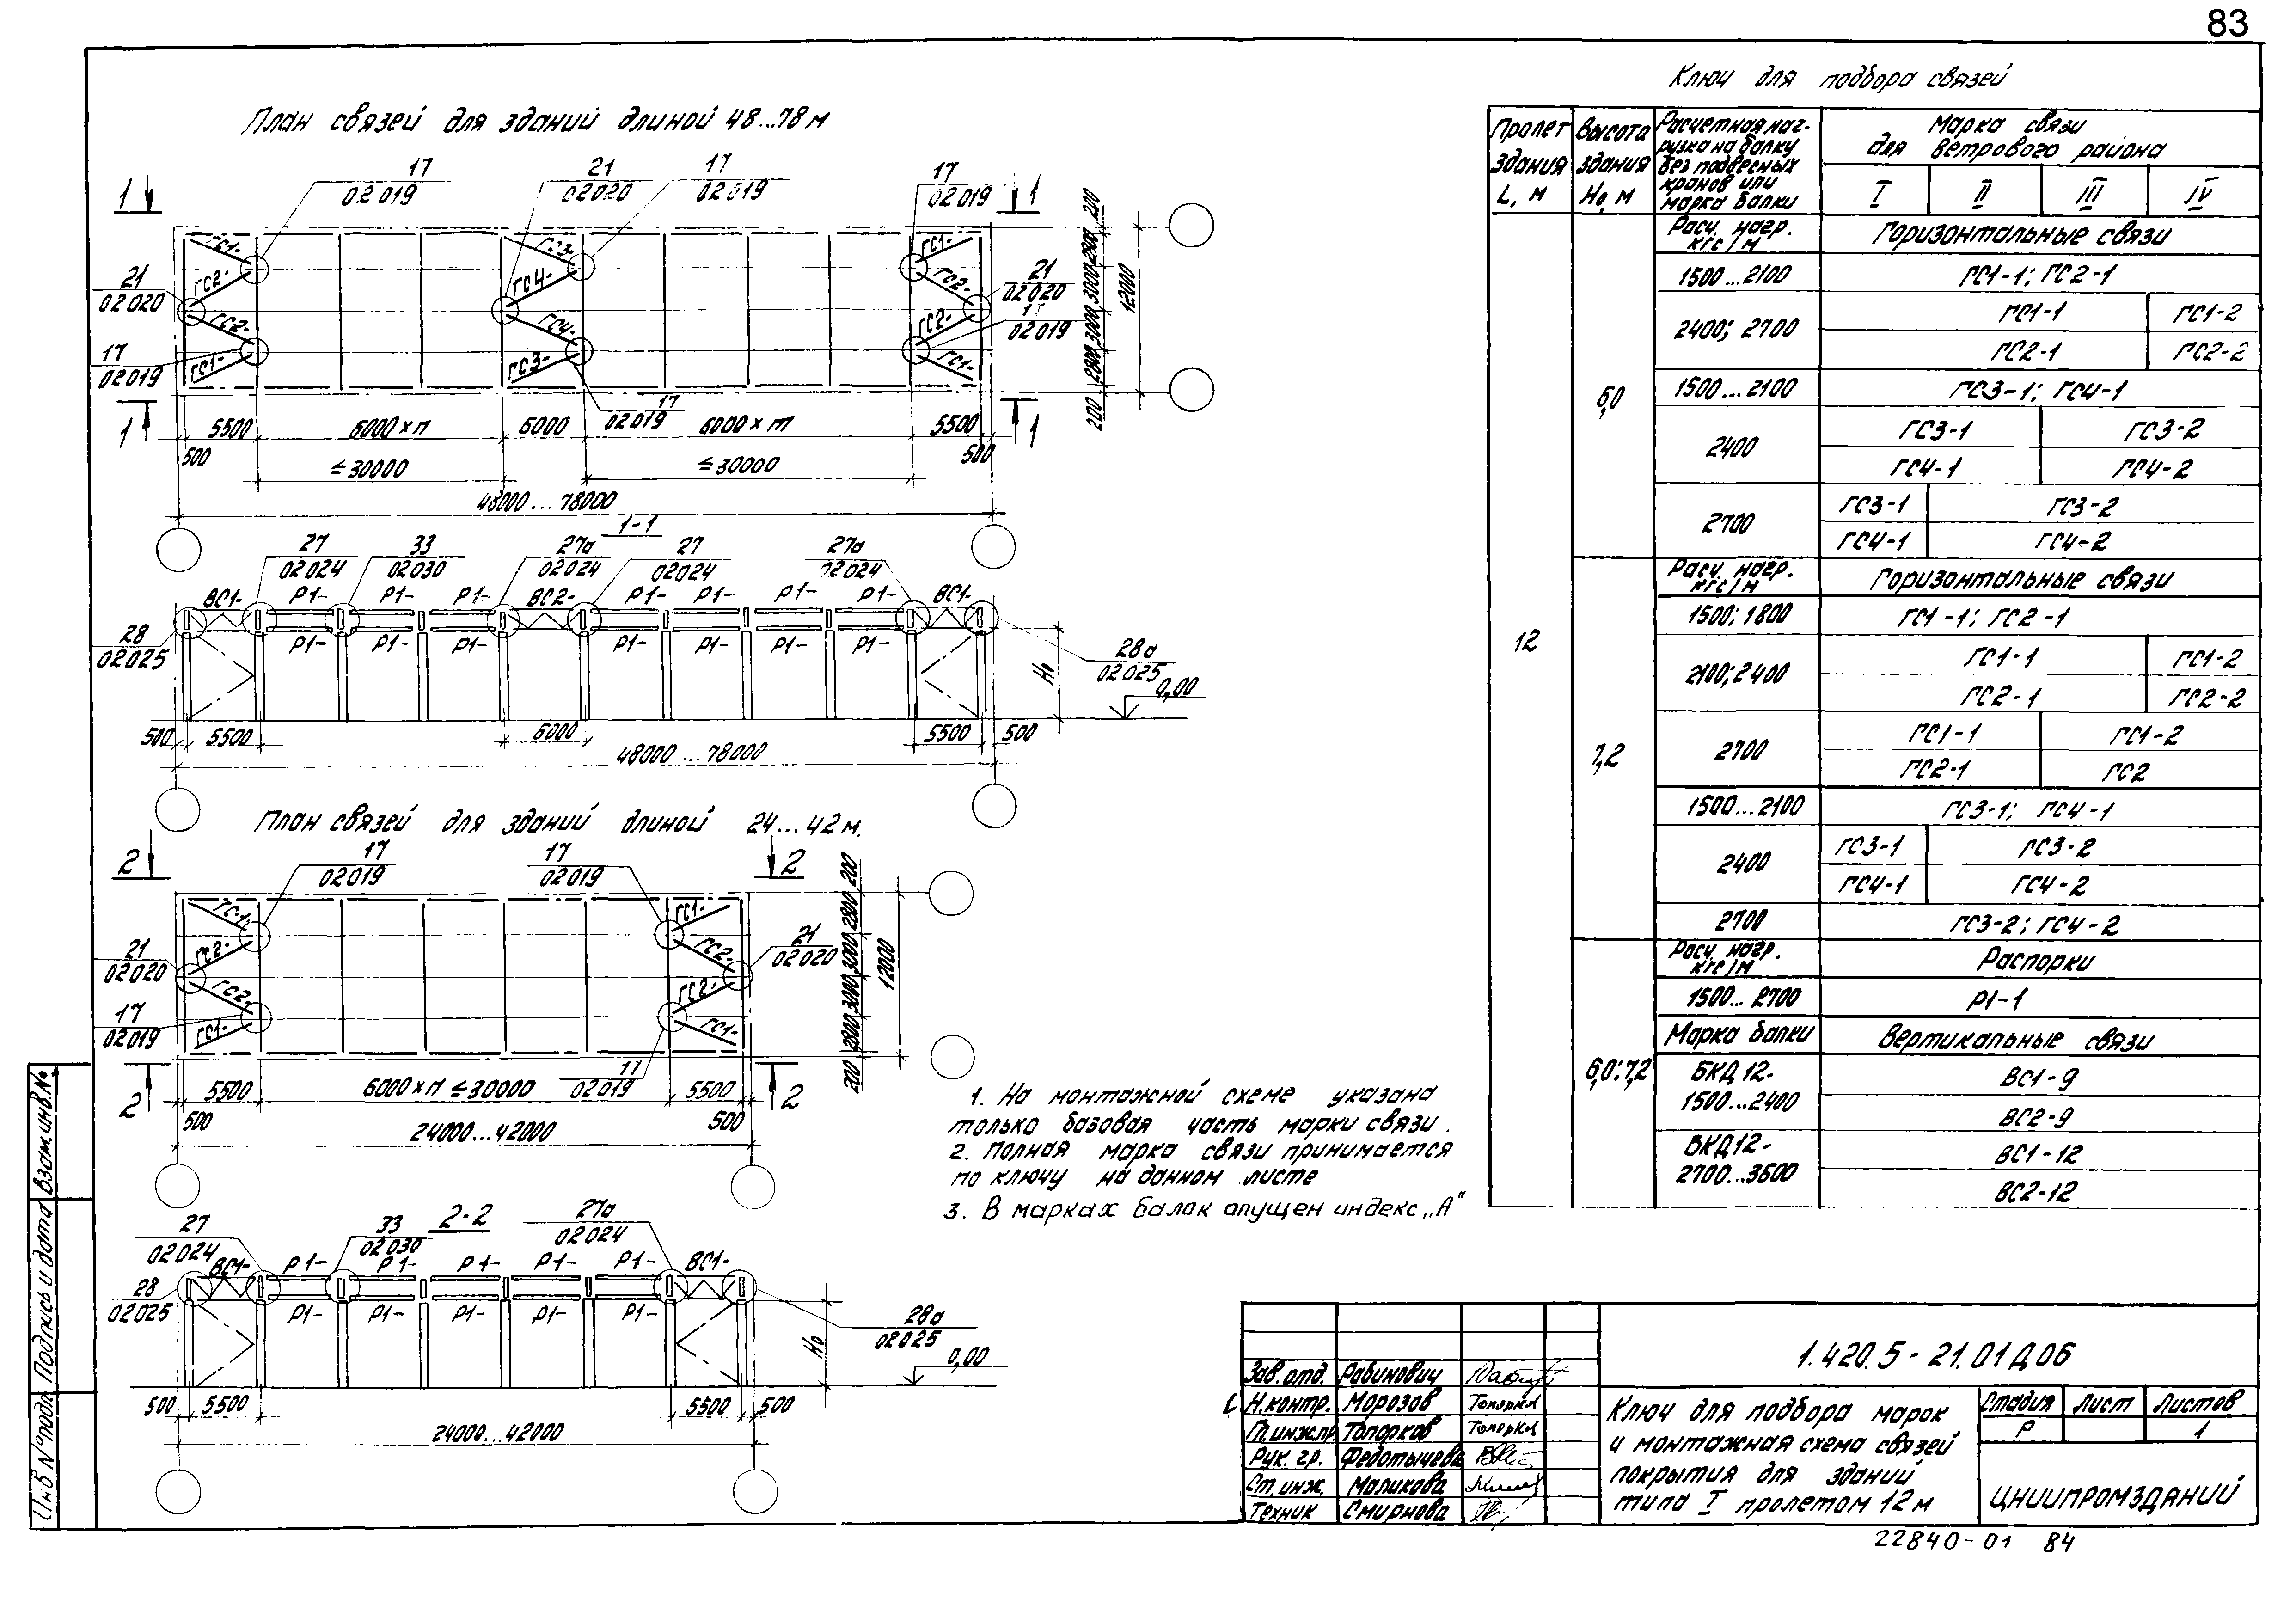 83
План связей для зданий длиной 48...78 м
1 1
17
02019
21
02020
17
02019
17
02019
ГС1- ГС3- ГС1-
ГС2- ГС4- ГС2-
21
02020
21
02020
17
02019
ГС2- ГС4- ГС2-
17
02019
ГС1- ГС3- ГС1-
17
02019
200 2800 3000 3000 2800 200
12000
1 1
5500 6000×п 6000 6000×т 5500
500 500
≤30000 ≤30000
48000...78000
1-1
27
02024
33
02030
27а
02024
27
02024
27а
02024
ВС1- Р1- Р1- Р1- ВС2- Р1- Р1- Р1- Р1- ВС1-
Р1- Р1- Р1- Р1- Р1- Р1- Р1-
28
02025
28а
02025
Н₀
0,00
500 5500 6000 5500 500
48000...78000
План связей для зданий длиной 24...42 м.
2 2
17
02019
17
02019
ГС1- ГС1-
ГС2- ГС2-
21
02020
21
02020
ГС2- ГС2-
17
02019
ГС1- ГС1-
17
02019
200 2800 3000 3000 2800 200
12000
2 2
5500 6000×п ≤30000 5500
500 500
24000...42000
2-2
27
02024
33
02030
27а
02024
ВС1- Р1- Р1- Р1- Р1- Р1- ВС1-
Р1- Р1- Р1- Р1- Р1-
28
02025
28а
02025
Н₀
0,00
500 5500 5500 500
24000...42000
1. На монтажной схеме указана
только базовая часть марки связи.
2. Полная марка связи принимается
по ключу на данном листе
3. В марках балок опущен индекс „А"
Ключ для подбора связей
Пролет здания L, м
Высота здания Н₀, м
Расчетная наг-
рузка на балку
без подвесных
кранов или
марка балки
Марка связи
для ветрового района
I II III IV
12
6,0
Расч. нагр. кгс/м Горизонтальные связи
1500...2100 ГС1-1; ГС2-1
2400; 2700 ГС1-1 ГС1-2
ГС2-1 ГС2-2
1500...2100 ГС3-1; ГС4-1
2400 ГС3-1 ГС3-2
ГС4-1 ГС4-2
2700 ГС3-1 ГС3-2
ГС4-1 ГС4-2
7,2
Расч. нагр. кгс/м Горизонтальные связи
1500; 1800 ГС1-1; ГС2-1
2100; 2400 ГС1-1 ГС1-2
ГС2-1 ГС2-2
2700 ГС1-1 ГС1-2
ГС2-1 ГС2
1500...2100 ГС3-1; ГС4-1
2400 ГС3-1 ГС3-2
ГС4-1 ГС4-2
2700 ГС3-2; ГС4-2
6,0; 7,2
Расч. нагр. кгс/м Распорки
1500...2700 Р1-1
Марка балки Вертикальные связи
БКД 12-
1500...2400
ВС1-9
ВС2-9
БКД12-
2700...3600
ВС1-12
ВС2-12
Зав. отд. Рабинович
Н.контр. Морозов Топорков
Гл.инж.пр. Топорков Топорков
Рук. гр. Федотычева
Ст. инж. Маликова
Техник Смирнова
1.420.5-21.01Д06
Ключ для подбора марок
и монтажная схема связей
покрытия для зданий
типа I пролетом 12 м
Стадия Лист Листов
Р 1
ЦНИИПРОМЗДАНИЙ
22840-01 84
Инв. № подл. Подпись и дата Взам. инв. №